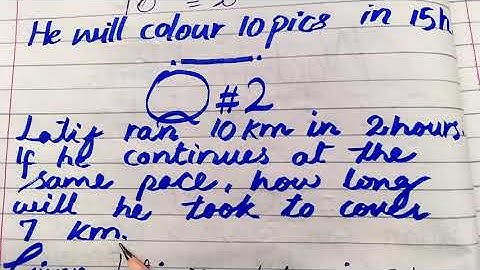 He will colour 10 pics in 15h
Q #2
Latif ran 10 km in 2 hours.
If he continues at the
same pace, how long
will he took to cover
7 km.